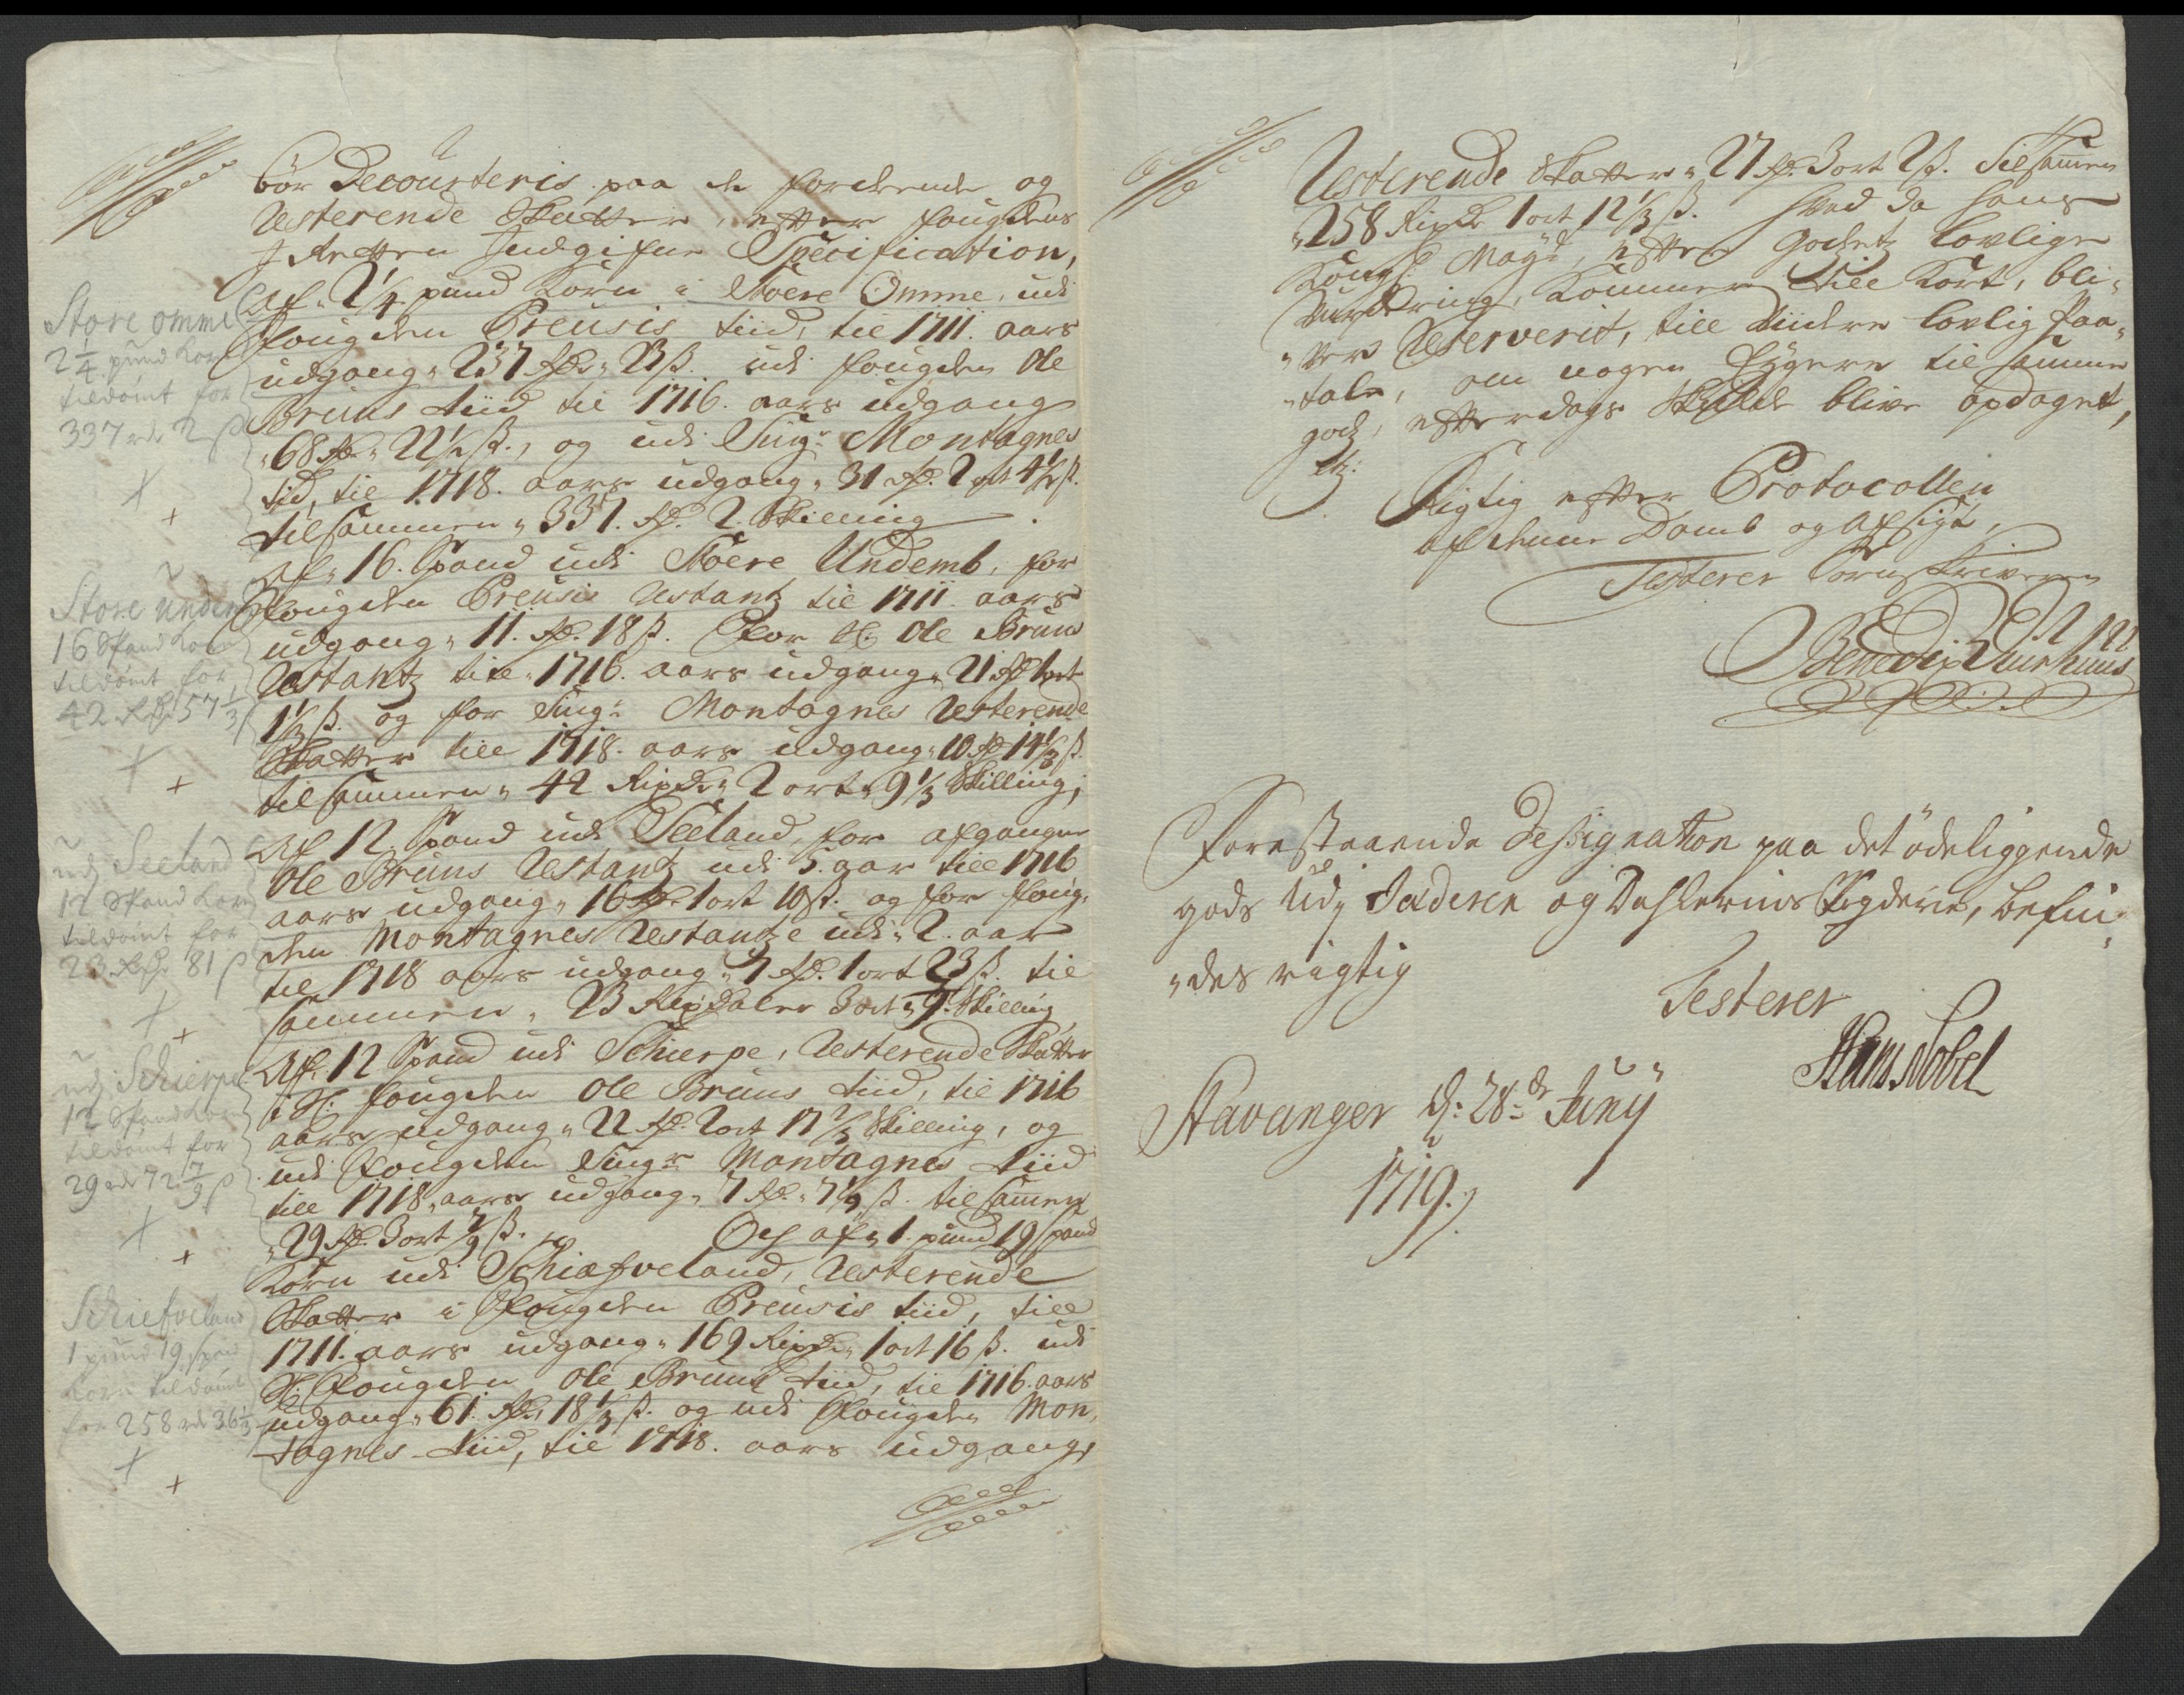 bør Decourteris paa de forderende og
Resterende Skatter, efter fougdens
I Retten Indgifne Specification,
Af 2 1/4 pund Korn i Stoere Omme, udi
fougden Preusis tiid, til 1711. aars
udgang " 237 Rdr " 23 ß. udi fougden Ole
Bruns tiid til 1716. aars udgang
" 68 Rdr " 22 1/2 ß., og udi Sing.r Montagnes
tid, til 1718. aars udgang " 31 Rd. 2 ort 4 1/2 ß.
tilsammen " 337. Rd. 2. Skilling
Af " 16. Spand udi Stoere Undemb, for
fougden Preusis Restantz til 1711. aars
udgang " 11. Rd. 18 ß. For Hr. Ole Bruns
Restantz til " 1716. aars udgang " 21 Rd 1 ort
1 1/3 ß. og for Sing.r Montagnes Resterende
Skatter till 1718. aars udgang " 10 Rd 14 1/3 ß.
tilsammen " 42 Rixdr " 2 ort " 9 1/3 Skilling;
Af 12 Spand udi Seeland, for afgangne
Ole Bruns Restantz udi 5. aar till 1716
aars udgang " 16 Rdr 1 ort 10 ß. og for foug-
den Montagnes Restantze udi " 2. aar
til 1718 aars udgang " 7 Rd. 1 ort 23 ß. til
sammen " 23 Rixdaler 3 ort " 9 Skilling
Af 12 Spand udi Schierpe, Resterende Skatter
i Hr. fougden Ole Bruns tiid, til 1716
aars udgang " 22 Rd. 2 ort 17 2/3 Skilling, og
udi Fougden Sing.r Montagnes tiid
till 1718, aars udgang " 7 Rd. " 7 1/9 ß. tilsamen
" 29 Rd. 3 ort 7/9 ß. Og af " 1. pund 19 spand
Korn udi Schiæfveland, Resterende
Skatter i Fougden Preusis tiid, till
1711. aars udgang " 169 Rixdr " 1 ort 16 ß. udi
Hr. Fougden Ole Bruns tiid, til 1716. aars
udgang " 61. Rd. 18 1/3 ß. og udi Fougden Mon-
tagnes tiid, til 1718. aars udgang,
Store omme
2 1/4 pund Korn
tildømt for
337 rdr 2 ß
Store Undem
16 Spand Korn
tildømt for
42 Rdr 57 1/3 ß
udj Seeland
12 Spand Korn
tildømt for
23 Rdr 81 ß
udj Schierpe
12 Spand Korn
tildømt for
29 rdr 72 7/9 ß
Schiefveland
1 pund 19 span
Korn tildømt
for 258 rdr 36 1/3
Resterende Skatter " 27 Rd. 3 ort 2 ß. Tilsamen
" 258 Rixdr 1 ort 12 1/3 ß. hvad da hans
Kongl: May.t, efter Godtz lovlige
Vurdering, kommer till Kort, bli-
" ver Reserverit, till videre lovlig Paa-
" tale, om nogen Eÿgere til samme
gods, efterdags Skulde blive opdaget,
Rigtig efter Protocollen
af denne Domb og Afsigt,
Testerer Sornskriveren
Foreskaaende Dessignation paa det ödeliggende
gods Udj Jæderen og Dahlernes Fogderie, befin-
" des rigtig
Testerer
Hans Nobel
Stavanger d: 28.de Junÿ
1719.